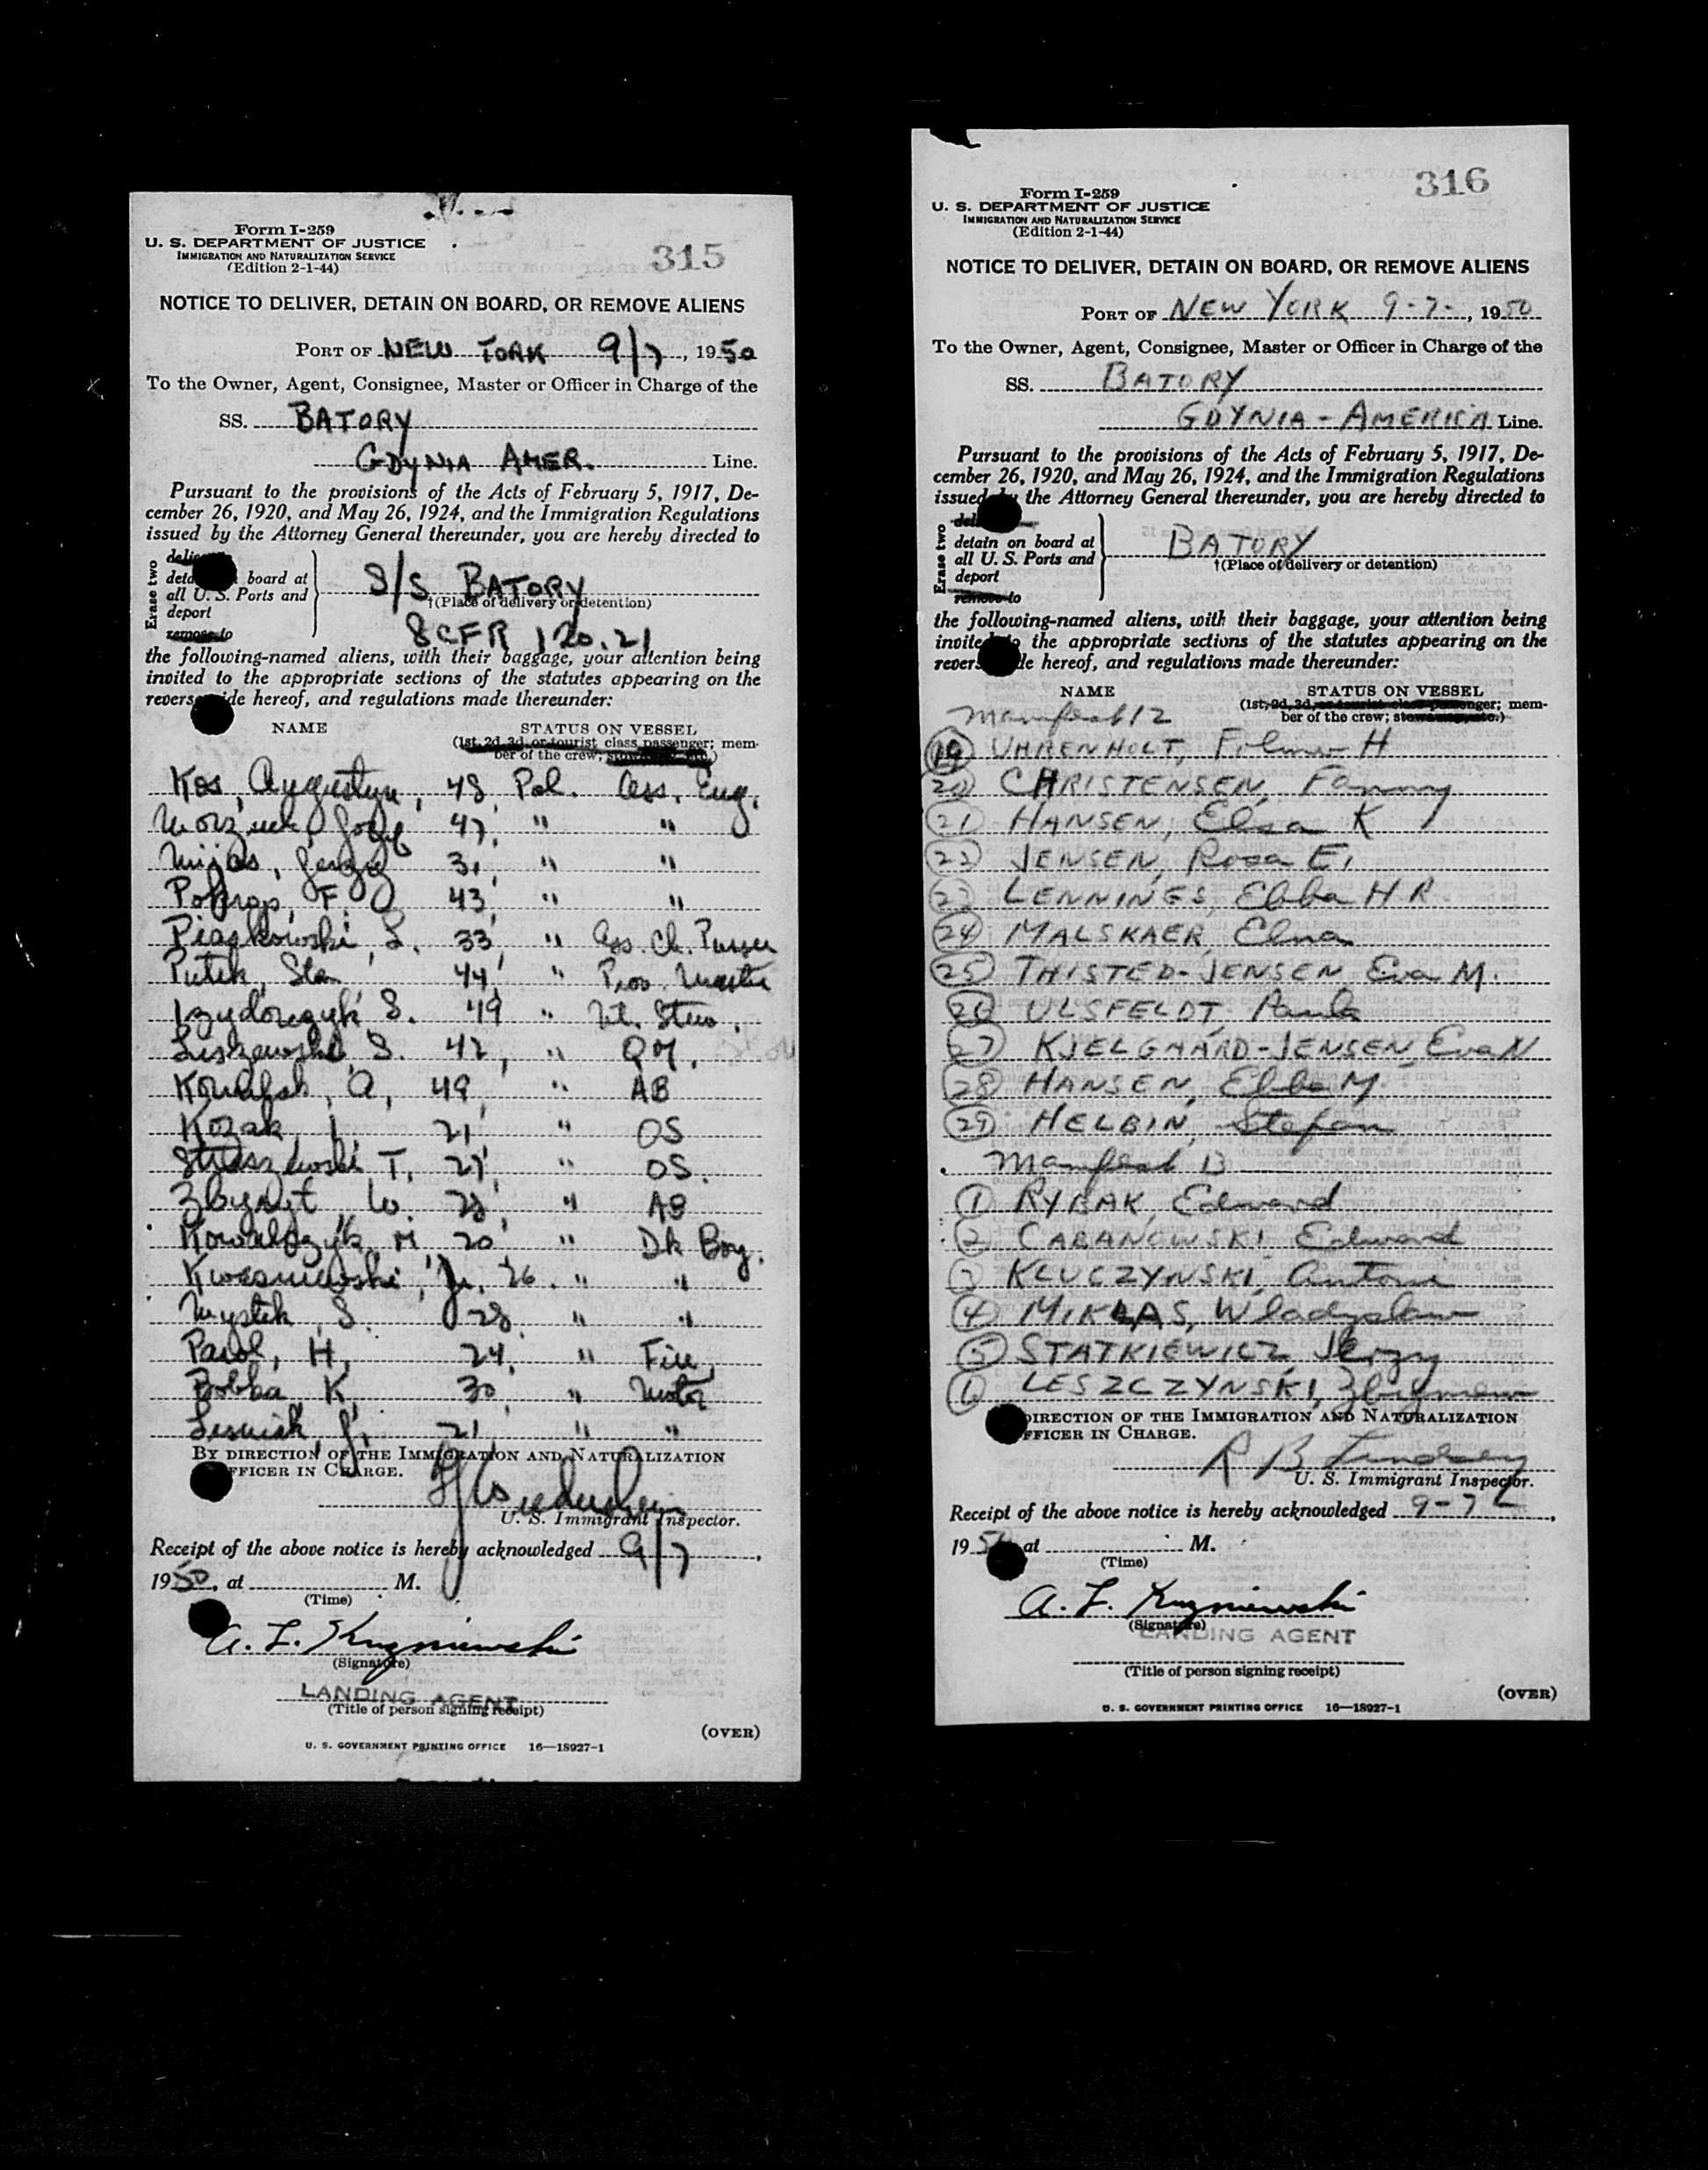 315
Form I-259
U. S. DEPARTMENT OF JUSTICE
IMMIGRATION AND NATURALIZATION SERVICE
(Edition 2-1-44)
NOTICE TO DELIVER, DETAIN ON BOARD, OR REMOVE ALIENS
PORT OF NEW YORK 9/7, 1950
To the Owner, Agent, Consignee, Master or Officer in Charge of the
SS. BATORY
GDYNIA AMER. Line.
Pursuant to the provisions of the Acts of February 5, 1917, De-
cember 26, 1920, and May 26, 1924, and the Immigration Regulations
issued by the Attorney General thereunder, you are hereby directed to
Erase two
board at
all U. S. Ports and
deport
remove to
S/S BATORY
†(Place of delivery or detention)
8 CFR 120.21
the following-named aliens, with their baggage, your attention being
invited to the appropriate sections of the statutes appearing on the
hereof, and regulations made thereunder:
NAME
STATUS ON VESSEL
(1st, 2d, 3d, or tourist class passenger; mem-
ber of the crew;
Kos, Augustyn, 48, Pol. Ass. Eng.
47, " "
Jerzy 31, " "
F. 43, " "
Piaskowski, L. 33, " Ass. Ch. Purser
Putek, Stan 44, " Prov. Master
Izydorczyk S. 49 "
S. 42, " QM.
A, 49, " AB
Kozak, I. 21, " OS
T. 27, " OS.
W. " AB
Kowalczyk M. 20, " Dk Boy.
Kwasniewski, 26. " "
S. 28. " "
Parol, H, 24, " Fire,
Bobka K. 30, " Motor
Lesniak, J. 21, " "
BY DIRECTION OF THE IMMIGRATION AND NATURALIZATION
OFFICER IN CHARGE.
U. S. Immigrant Inspector.
Receipt of the above notice is hereby acknowledged 9/7,
1950, at M.
(Time)
A. L. Kuzniewski
(Signature)
LANDING AGENT
(Title of person signing receipt)
(OVER)
U. S. GOVERNMENT PRINTING OFFICE 16—18927-1
316
Form I-259
U. S. DEPARTMENT OF JUSTICE
IMMIGRATION AND NATURALIZATION SERVICE
(Edition 2-1-44)
NOTICE TO DELIVER, DETAIN ON BOARD, OR REMOVE ALIENS
PORT OF NEW YORK 9-7-, 1950
To the Owner, Agent, Consignee, Master or Officer in Charge of the
SS. BATORY
GDYNIA-AMERICA Line.
Pursuant to the provisions of the Acts of February 5, 1917, De-
cember 26, 1920, and May 26, 1924, and the Immigration Regulations
issued by the Attorney General thereunder, you are hereby directed to
Erase two
detain on board at
all U. S. Ports and
deport
remove to
BATORY
†(Place of delivery or detention)
the following-named aliens, with their baggage, your attention being
invited to the appropriate sections of the statutes appearing on the
hereof, and regulations made thereunder:
NAME
STATUS ON VESSEL
(1st, 2d, 3d, or tourist class passenger; mem-
ber of the crew; stowaway, etc.)
Manifest 12
19 UHRENHOLT, Filmer H
20 CHRISTENSEN, Fanny
21 HANSEN, Elsa K
22 JENSEN, Rosa E.
23 LENNINGS, Ebba H R
24 MALSKAER, Elna
25 THISTED-JENSEN Eva M.
26 ULSFELDT, Paula
27 KJELGAARD-JENSEN, Eva N
28 HANSEN, Ebba M.
29 HELBIN, Stefan
Manifest 13
1 RYBAK, Edward
2 CABANOWSKI, Edward
3 KLUCZYNSKI, Antoni
4 MIKLAS, Wladyslaw
5 STATKIEWICZ, Jerzy
6 LESZCZYNSKI, Zbigniew
DIRECTION OF THE IMMIGRATION AND NATURALIZATION
OFFICER IN CHARGE.
R B Lindsey
U. S. Immigrant Inspector.
Receipt of the above notice is hereby acknowledged 9-7,
1950 at M.
(Time)
A. L. Kuzniewski
(Signature)
LANDING AGENT
(Title of person signing receipt)
(OVER)
U. S. GOVERNMENT PRINTING OFFICE 16—18927-1